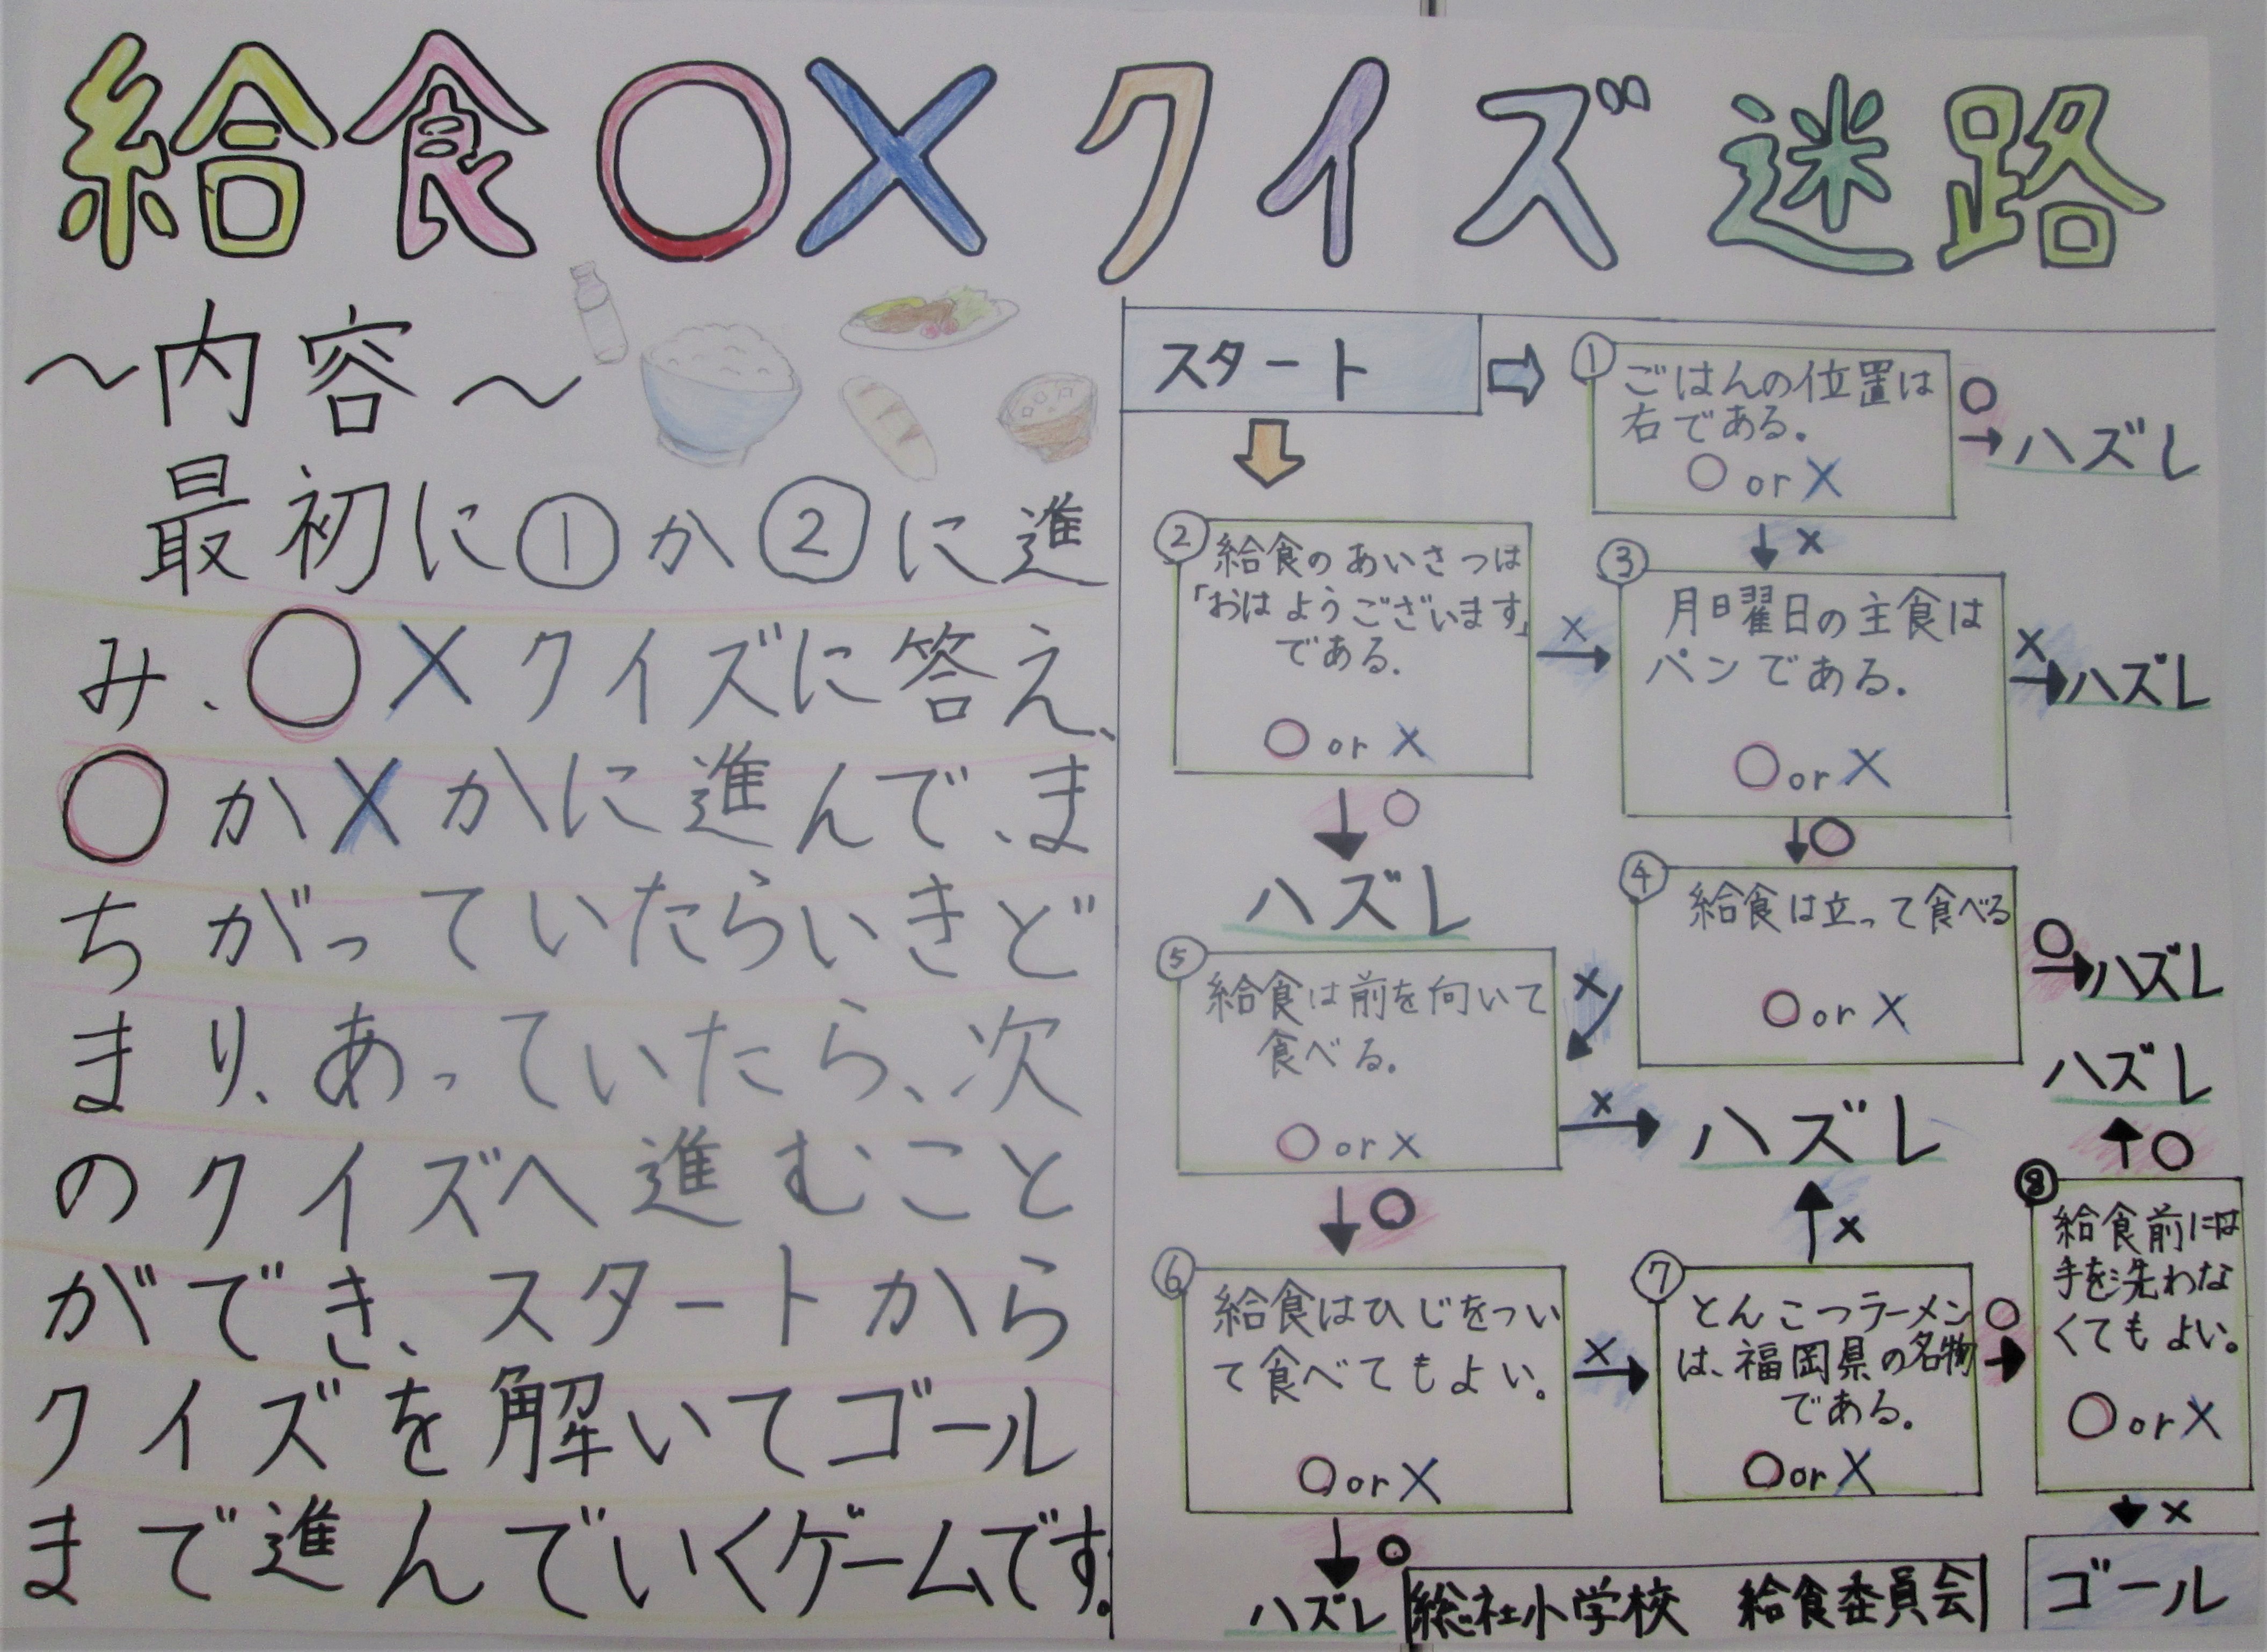 給食○×クイズ迷路
～内容～
最初に①か②に進
み、○×クイズに答え、
○か×かに進んで、ま
ちがっていたらいきど
まり、あっていたら、次
のクイズへ進むこと
ができ、スタートから
クイズを解いてゴール
まで進んでいくゲームです。
スタート
①
ごはんの位置は
右である。
○or×
○
ハズレ
×
②
給食のあいさつは
「おはようございます」
である。
○or×
×
○
ハズレ
③
月曜日の主食は
パンである。
○or×
×
ハズレ
○
④
給食は立って食べる
○or×
○
ハズレ
×
⑤
給食は前を向いて
食べる。
○or×
×
ハズレ
○
⑥
給食はひじをつい
て食べてもよい。
○or×
×
○
ハズレ
⑦
とんこつラーメン
は、福岡県の名物
である。
○or×
×
○
⑧
給食前には
手を洗わな
くてもよい。
○or×
○
ハズレ
×
ゴール
総社小学校 給食委員会